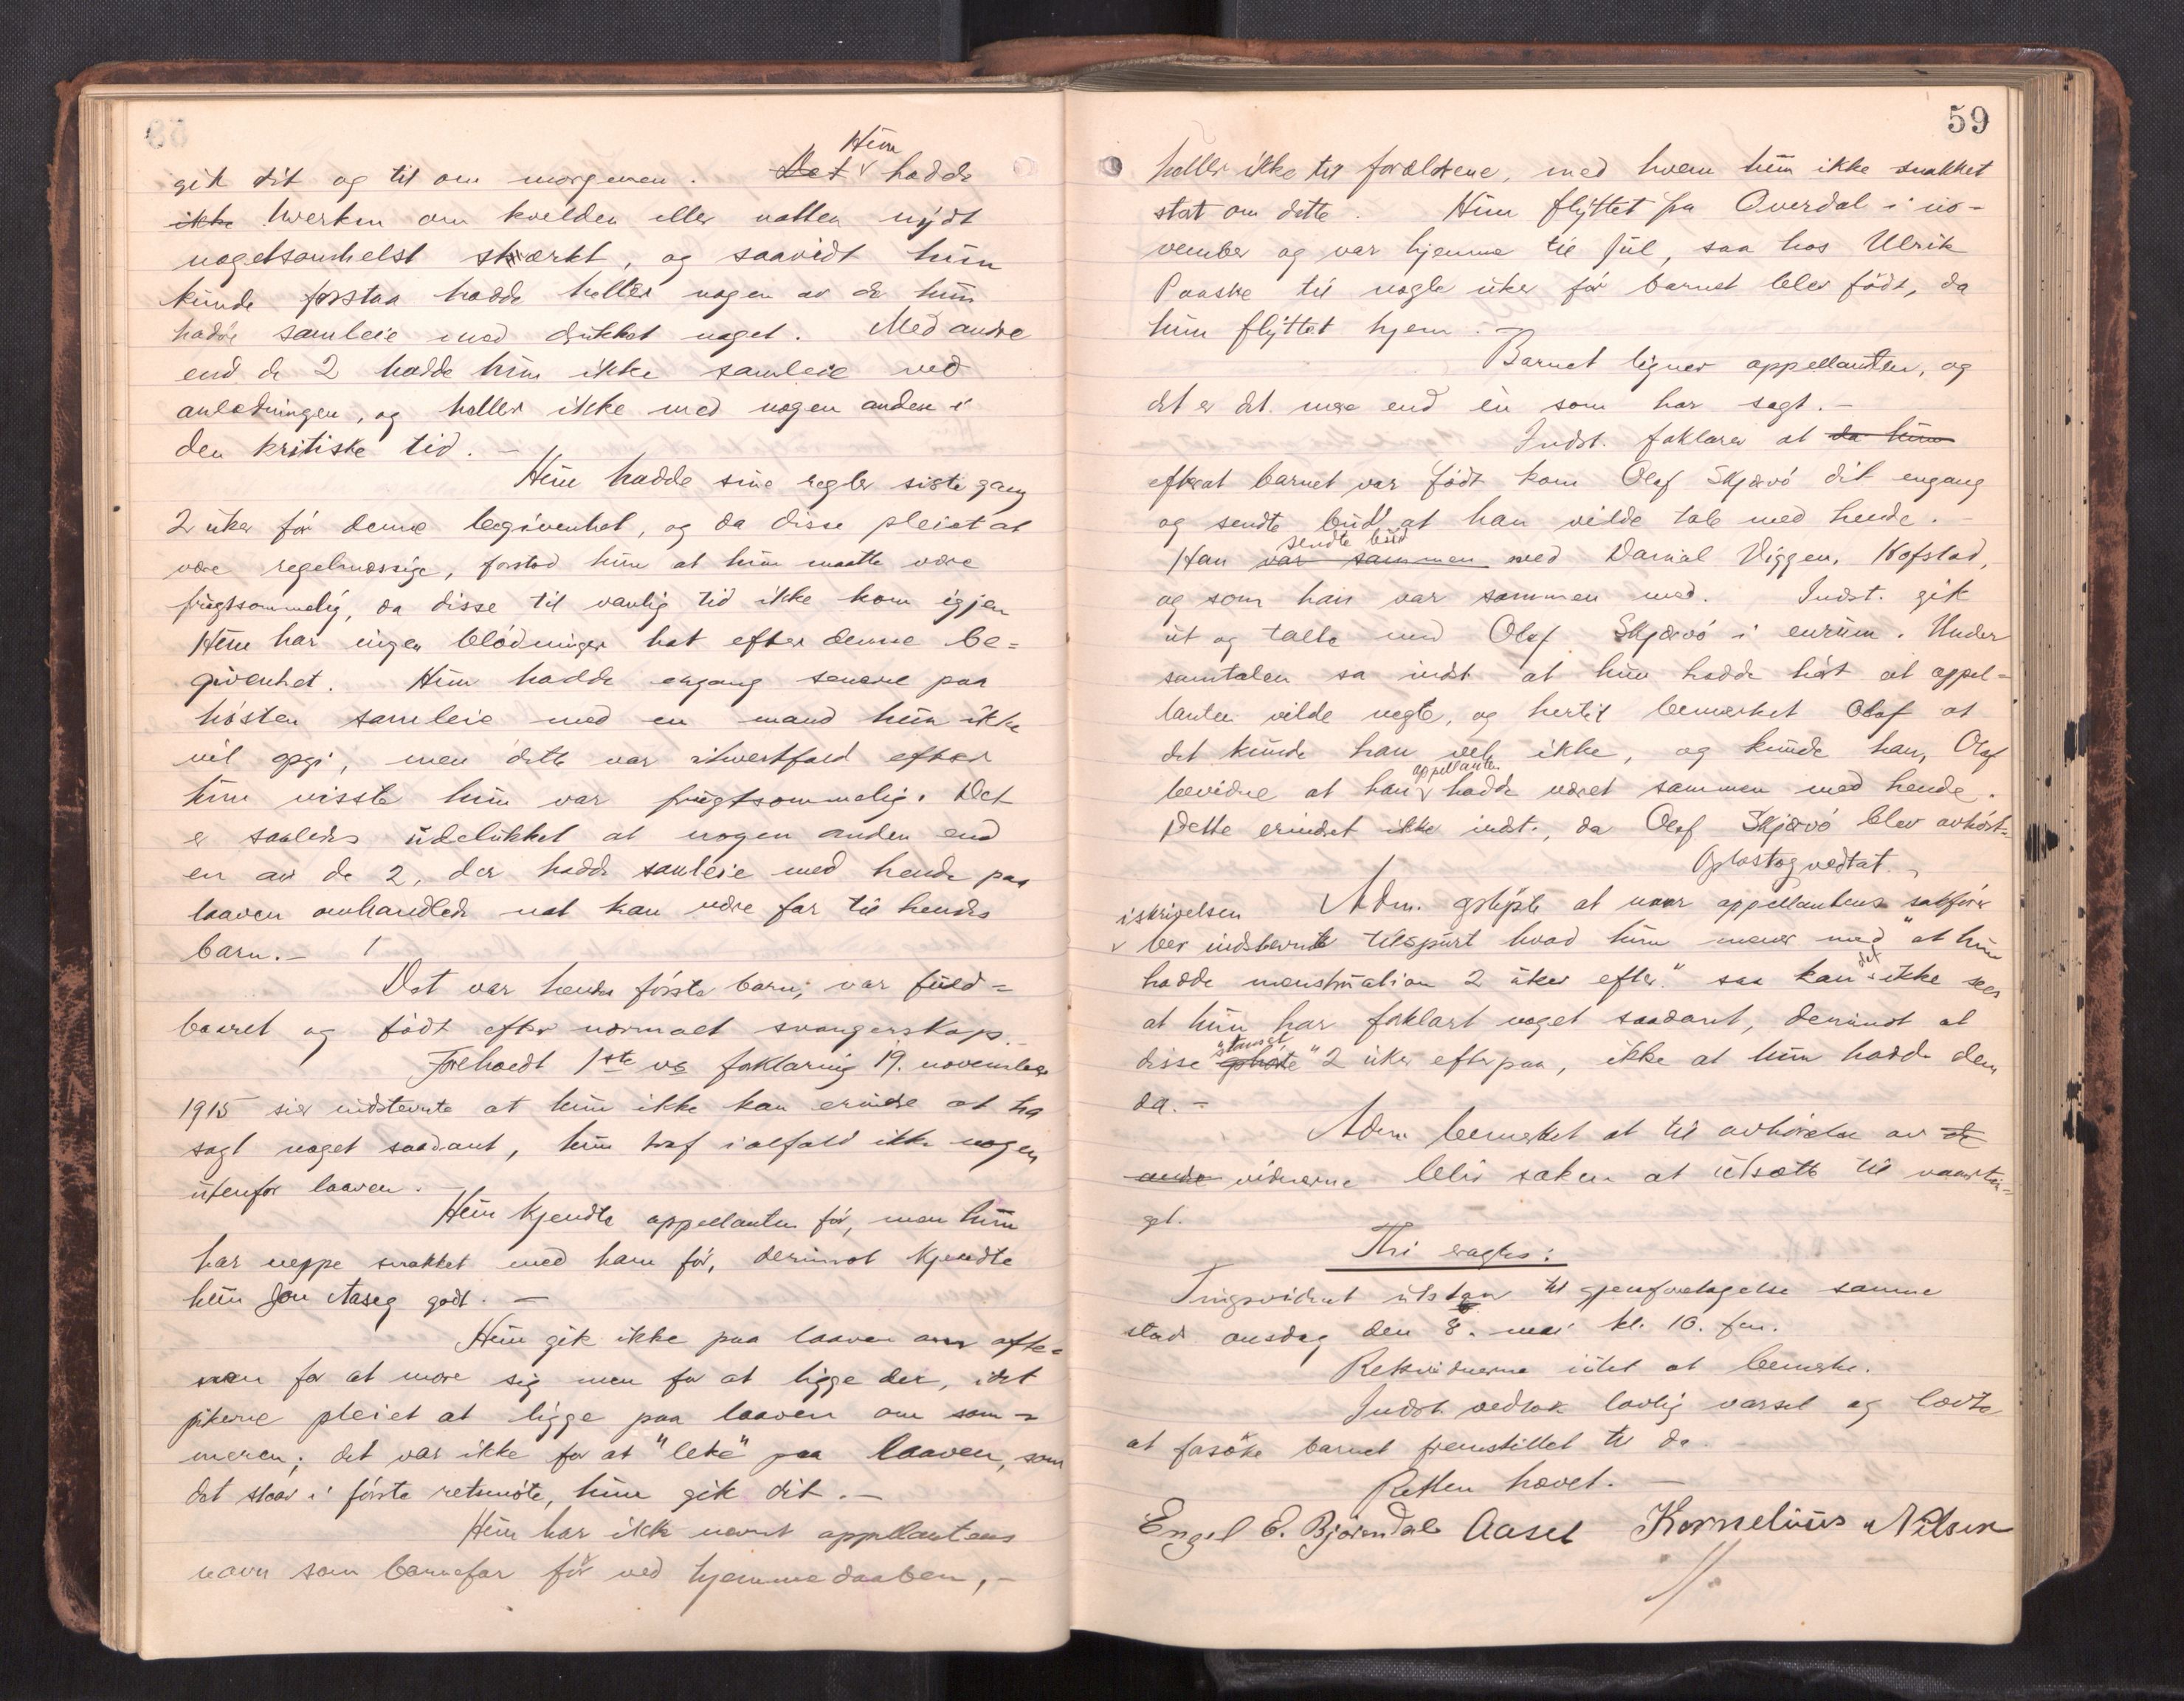 gik dit og til om morgenen. Det Hun hadde
ikke hverken om kvelden eller natten nydt
nogetsomhelst stærkt, og saavidt hun
kunde forstaa hadde heller nogen av de hun
hadde samleie med drukket noget. Med andre
end de 2 hadde hun ikke samleie ved
anledningen, og heller ikke med nogen anden i
den kritiske tid. –
Hun hadde sine regler siste gang
2 uker før denne begivenhet, og da disse pleiet at
være regelmæssige, forstod hun at hun maatte være
frugtsommelig, da disse til vanlig tid ikke kom igjen
Hun har ingen blødninger hat efter denne be=
givenhet. Hun hadde engang senere paa
høsten samleie med en mand hun ikke
vil opgi, men dette var ihvertfald efter
hun visste hun var frugtsommelig. Det
er saaledes udelukket at nogen anden end
en av de 2, der hadde samleie med hende paa
laaven omhandlede nat kan være far til hendes
barn. –
Det var hendes første barn; var fuld=
baaret og født efter normalt svangerskap. –
Foreholdt 1ste vs forklaring 19. november
1915 sier indstevnte at hun ikke kan erindre at ha
sagt noget saadant, hun traf ialfald ikke nogen
utenfor laaven. –
Hun kjendte appellanten før, men hun
har neppe snakket med ham før, derimot kjendte
hun Jon Aaseg godt. –
Hun gik ikke paa laaven om afte=
nen for at more sig men for at ligge der, idet
pikerne pleiet at ligge paa laaven om som=
meren; det var ikke for at "leke" paa laaven, som
det staar i første retsmøte, hun gik dit. –
Hun har ikke nævnt appellantens
navn som barnefar før ved hjemmedaaben, –
59
heller ikke til forældrene, med hvem hun ikke snakket
stort om dette. Hun flyttet fra Overdal i no-
vember og var hjemme til jul, saa hos Ulrik
Paaske til nogle uker før barnet blev født, da
hun flyttet hjem. –
Barnet ligner appellanten, og
det er det mere end èn som har sagt. –
Indst. forklarer at da hun
efterat barnet var født kom Olaf Skjævø dit engang
og sendte bud at han vilde tale med hende.
Han var sammen sendte bud med Daniel Viggen, Kofstad,
og som han var sammen med. Indst. gik
ut og talte med Olaf Skjævø i enrum. Under
samtalen sa indst. at hun hadde hørt at appel=
lanten vilde negte, og hertil bemerket Olaf at
det kunde han vel ikke, og kunde han, Olaf
bevidne at han appellanten hadde været sammen med hende.
Dette erindret ikke indst., da Olaf Skjævø blev avhørt.
Oplæst og vedtat. –
Adm. oplyste at naar appellantens sakfører
i skrivelsen
ber indstevnte tilspurt hvad hun mener med "at hun
hadde menstruation 2 uker efter" saa kan det ikke sees
at hun har forklart noget saadant, derimot at
disse ophørte "stanset" 2 uker efterpaa, ikke at hun hadde dem
da. –
Adm. bemerket at til avhørelse av de
andre vidnerne blir saken at utsætte til vaartin=
get.
Thi eragtes:
Tingsvidnet utstaar til gjenforetagelse samme
sted onsdag den 8. mai kl. 10. fm.
Retsvidnerne intet at bemerke.
Indst. vedtok lovlig varsel og lovte
at forsøke barnet fremstillet til da. –
Retten hævet. –
Engel E. Bjørndal Aaset Kornelius Nilsen